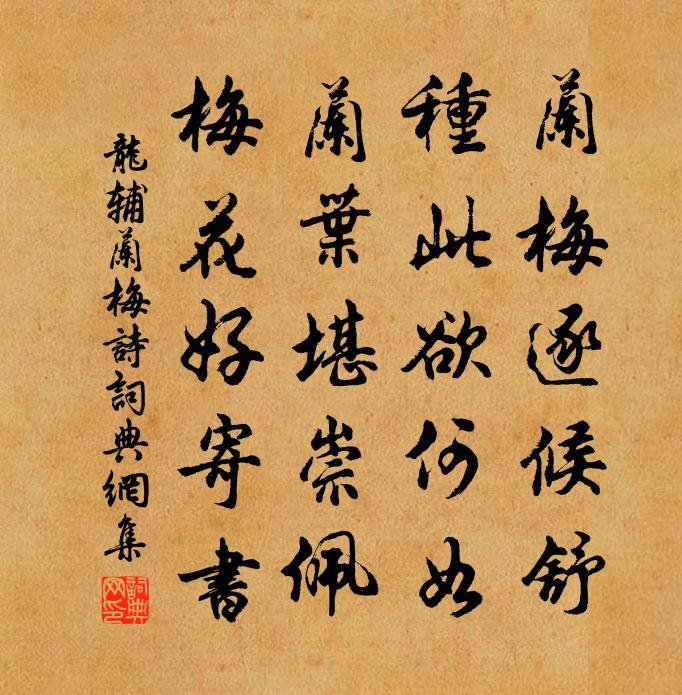 蘭梅逐候舒
種此欲何如
蘭葉堪崇佩
梅花好寄書
龍辅蘭梅詩詞典網集
詞典網印